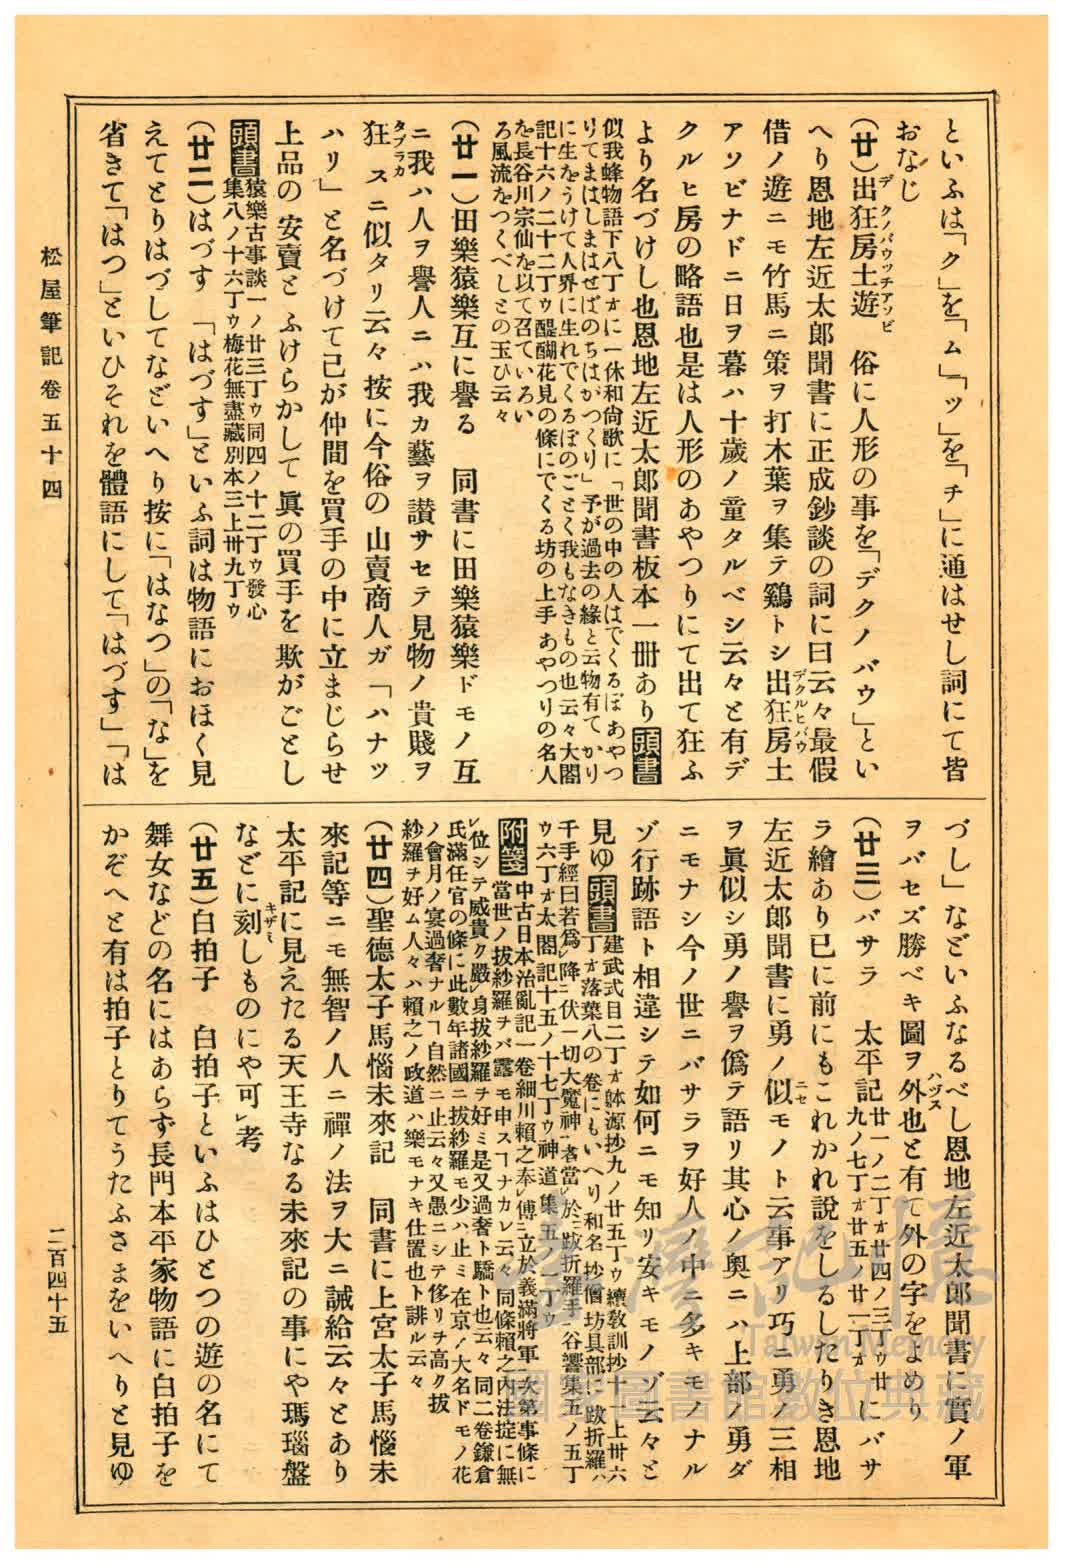 といふは「ク」を「ム」「ツ」を「チ」に通はせし詞にて皆
おなじ
(廿)出狂房土遊　俗に人形の事を「デクノバウ」とい
デクノバウツチアソビ
へり恩地左近太郎聞書に正成鈔談の詞に曰云々最假
借ノ遊ニモ竹馬ニ策ヲ打木葉ヲ集テ鷄トシ出狂房土
デクルヒバウ
アソビナドニ日ヲ暮ハ十歲ノ童タルベシ云々と有デ
クルヒ房の略語也是は人形のあやつりにて出て狂ふ
より名づけし也恩地左近太郎聞書板本一冊あり頭書
似我蜂物語下八丁ォに一休和尙歌に「世の中の人はでくるぼあやつ
りてまはしまはせばのちはがつくり」予が過去の緣と云物有てかり
に生をうけて人界に生れでくるぼのごとく我もなきもの也云々大閤
記十六ノ二十二丁ゥ醍醐花見の條にでくる坊の上手あやつりの名人
を長谷川宗仙を以て召ていろい
ろ風流をつくべしとの玉ひ云々
(廿一)田樂猿樂互に譽る　同書に田樂猿樂ドモノ互
ニ我ハ人ヲ譽人ニハ我カ藝ヲ讃サセテ見物ノ貴賤ヲ
狂スニ似タリ云々按に今俗の山賣商人ガ「ハナツ
タブラカ
ハリ」と名づけて己が仲間を買手の中に立まじらせ
上品の安賣とふけらかして眞の買手を欺がごとし
頭書猿樂古事談一ノ廿三丁ゥ同四ノ十二丁ゥ發心
集八ノ十六丁ゥ梅花無盡藏別本三上卅九丁ゥ
(廿二)はづす　「はづす」といふ詞は物語におほく見
えてとりはづしてなどいへり按に「はなつ」の「な」を
省きて「はつ」といひそれを體語にして「はづす」「は
づし」などいふなるべし恩地左近太郎聞書に實ノ軍
ヲバセズ勝ベキ圖ヲ外也と有て外の字をよめり
ハヅス
(廿三)バサラ　太平記廿一ノ二丁ォ廿四ノ三丁ゥ廿
九ノ七丁ォ廿五ノ廿一丁ォにバサ
ラ繪あり已に前にもこれかれ說をしるしたりき恩地
左近太郎聞書に勇ノ似モノト云事アリ巧ニ勇ノ三相
ニセ
ヲ眞似シ勇ノ譽ヲ僞テ語リ其心ノ奧ニハ上部ノ勇ダ
ニモナシ今ノ世ニバサラヲ好人ノ中ニ多キモノナル
ゾ行跡語ト相違シテ如何ニモ知リ安キモノゾ云々と
見ゆ頭書建武式目二丁ォ體源抄九ノ廿五丁ゥ續敎訓抄十一上卅六
丁ォ落葉八の卷にもいへり和名抄僧坊具部に跋折羅ハ
千手經曰若爲降伏一切大魔神者當於跋折羅手谷響集五ノ五丁
ゥ六丁ォ太閤記十五ノ十七丁ゥ神道集五ノ一丁ゥ
附箋　中古日本治亂記一卷細川賴之奉傅立於義滿將軍次第事條に
當世ノ拔紗羅ヲバ露モ申スヿナカレ云々同條賴之內法掟に無
位シテ威貴ク嚴身拔紗羅ヲ好ミ是又過奢ト驕ト也云々同二卷鎌倉
氏滿任官の條に此數年諸國ニ拔紗羅モ少ハ止ミ在京ノ大名ドモノ花
ノ會月ノ宴過奢ナルヿ自然ニ止云々又愚ニシテ侈リチ高ク拔
紗羅ヲ好ム人々ハ賴之ノ政道ハ樂モナキ仕置也ト誹ル云々
(廿四)聖德太子馬惱未來記　同書に上宮太子馬惱未
來記等ニモ無智ノ人ニ禪ノ法ヲ大ニ誡給云々とあり
太平記に見えたる天王寺なる未來記の事にや瑪瑙盤
などに刻しものにや可考
キザミ
(廿五)白拍子　白拍子といふはひとつの遊の名にて
舞女などの名にはあらず長門本平家物語に白拍子を
かぞへと有は拍子とりてうたふさまをいへりと見ゆ
松屋筆記卷五十四
二百四十五
臺灣記憶
Taiwan Memory
國家圖書館數位典藏